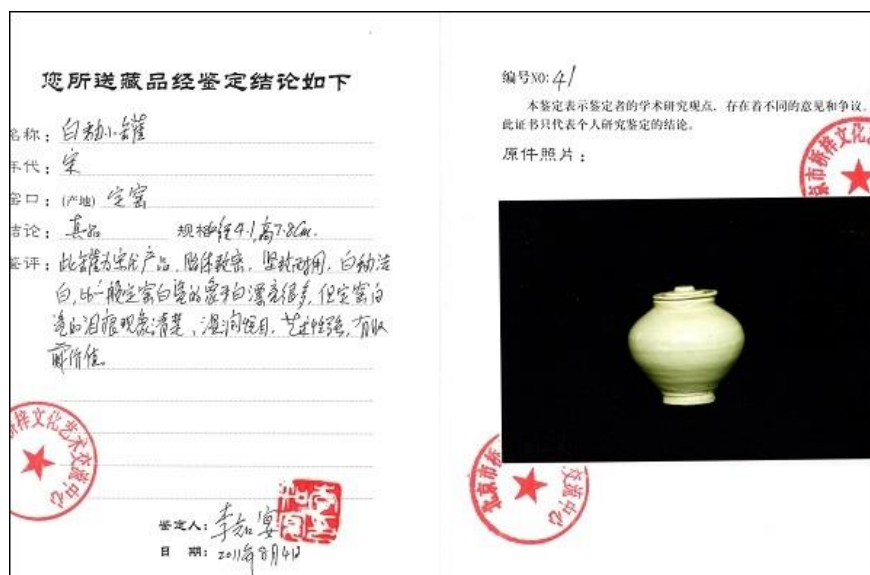 您所送藏品经鉴定结论如下
名称：白釉小罐
年代：宋
窑口：(产地) 定窑
结论：真品 规格：径4.1,高7.8Cm.
鉴评：此罐为宋代产品，胎体致密，坚致耐用，白釉洁
白，比一般定窑白瓷的象牙白漂亮很多，但定窑白
瓷的泪痕现象清楚，温润悦目，艺术性强，有收
藏价值。
桥梓文化艺术交流中心
鉴定人：李知宴
日期：2011年8月4日
编号NO：41
本鉴定表示鉴定者的学术研究观点，存在着不同的意见和争议，
此证书只代表个人研究鉴定的结论。
原件照片：
京市桥梓文化艺
北京市桥
艺术交流中心